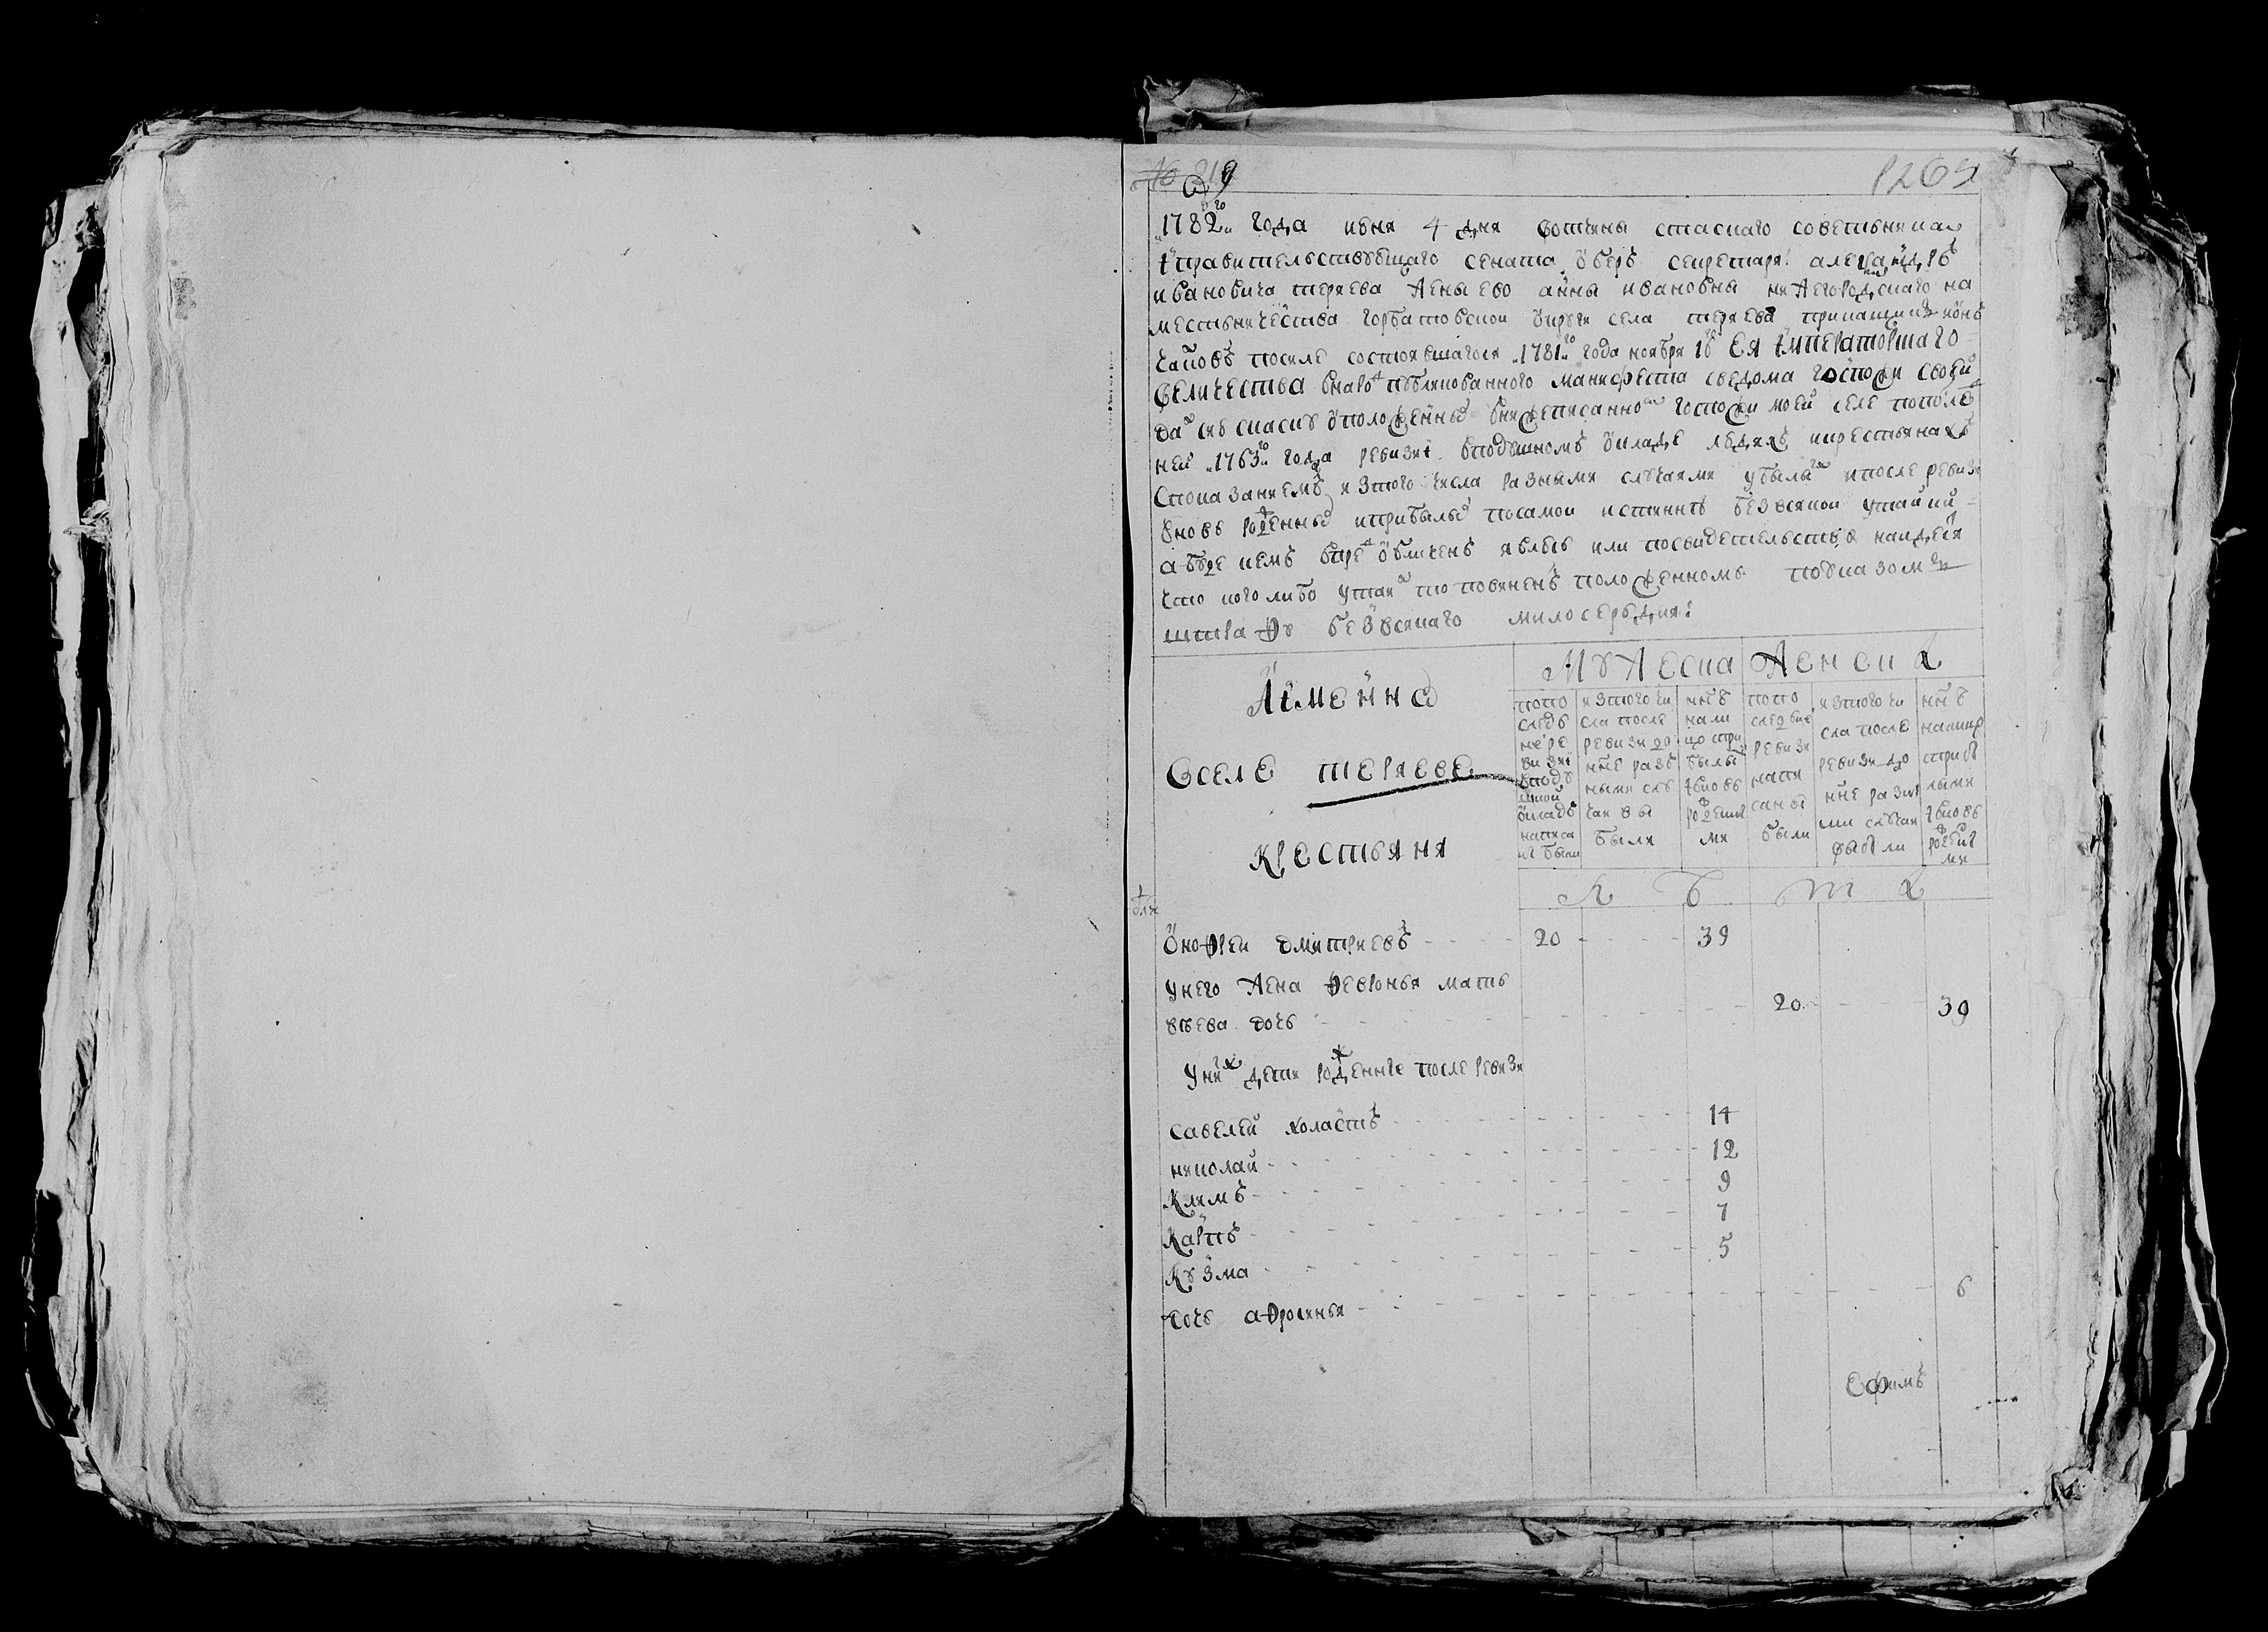 219
1782го года июня 4 дня вотчины стацкаго советьника
и правительствующаго сената оберъ секретаря александръ
ивановича теряева жены ево анны ивановны нижегородскаго на
местьничества горбатовской округи села теряева прикащикъ
после состоявшагося 1781го года ноября 16 Ея императорскаго
величества в народ публикованного манифеста сведома госпожи своей
дал сию скаску о положенных в нижеписанном госпожи моей селе по после
ней 1763го года ревизии в подушном окладе людях и крестьянах
с показанием из того числа разными случаями убылых и после ревизи
вновь рожденных и прибылых по самой истинне без всякой утайки
а буде кем впред обличен явлюсь или по свидетельству найдется
что кого либо утаил то повинен положенному по указом
штрафу безо всякаго милосердия:
А имянно
Мужеска Женска
в селе теряеве
по по следь ней ре ви зии в поду шной окладъ написа ны были
из того чи сла после ревизи до ныне раз ными слу чаи вы были
ныне на ли цо при былы и вновь рожденны ми
по по след ней ревизи напи саны были
из того чи сла после ревизи до ныне разны ми случаи выбыли
ныне налицо прибы лыми и вновь рожденны ми
крестьяня
Л е т
онофреи дмитриевъ 20 39
у него жена февронья мать
веева дочь 20 39
у них дети рожденные после ревизи
савелей холастъ 14
николай 12
климъ 9
карпъ 7
кузма 5
дочь афросинья 6
Ефимъ